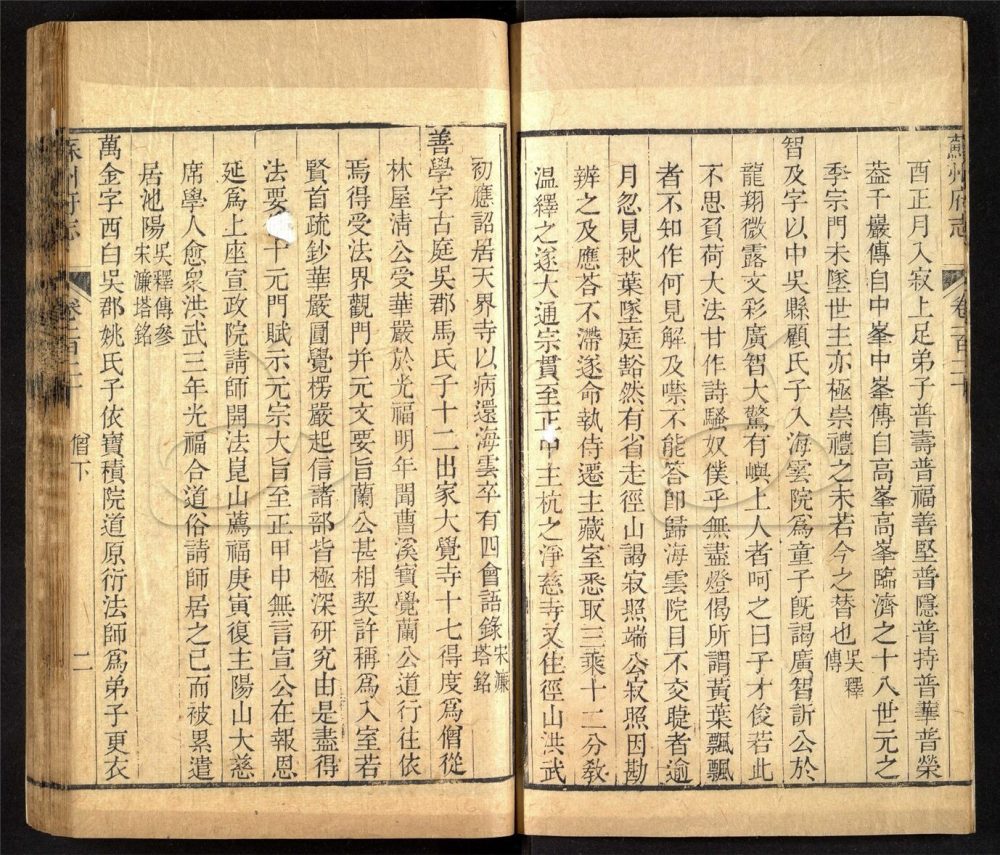 蘇州府志
卷一百三十
酉正月入寂上足弟子普壽普福善堅普隱普持普華普榮
葢千巖傳自中峯中峯傳自高峯高峯臨濟之十八世元之
季宗門未墜世主亦極崇禮之未若今之替也吳釋傳
智及字以中吳縣顧氏子入海雲院爲童子旣謁廣智訢公於
龍翔微露文彩廣智大驚有嶼上人者呵之曰子才俊若此
不思負荷大法甘作詩騷奴僕乎無盡燈偈所謂黃葉飄飄
者不知作何見解及噤不能答卽歸海雲院目不交睫者逾
月忽見秋葉墜庭豁然有省走徑山謁寂照端公寂照因勘
辨之及應答不滯遂命執侍遷主藏室悉取三乘十二分敎
温繹之遂大通宗貫至正甲主杭之淨慈寺又住徑山洪武
初應詔居天界寺以病還海雲卒有四會語錄宋濂塔銘
善學字古庭吳郡馬氏子十二出家大覺寺十七得度爲僧從
林屋淸公受華嚴於光福明年聞曹溪寶覺蘭公道行往依
焉得受法界觀門并元文要旨蘭公甚相契許稱爲入室若
賢首疏鈔華嚴圓覺楞嚴起信諸部皆極深研究由是盡得
法要 十元門賦示元宗大旨至正甲申無言宣公在報恩
延爲上座宣政院請師開法崑山薦福庚寅復主陽山大慈
席學人愈衆洪武三年光福合道俗請師居之已而被累遣
居池陽吳釋傳參宋濂塔銘
萬金字西白吳郡姚氏子依寶積院道原衍法師爲弟子更衣
蘇州府志
卷一百三十
僧下
二